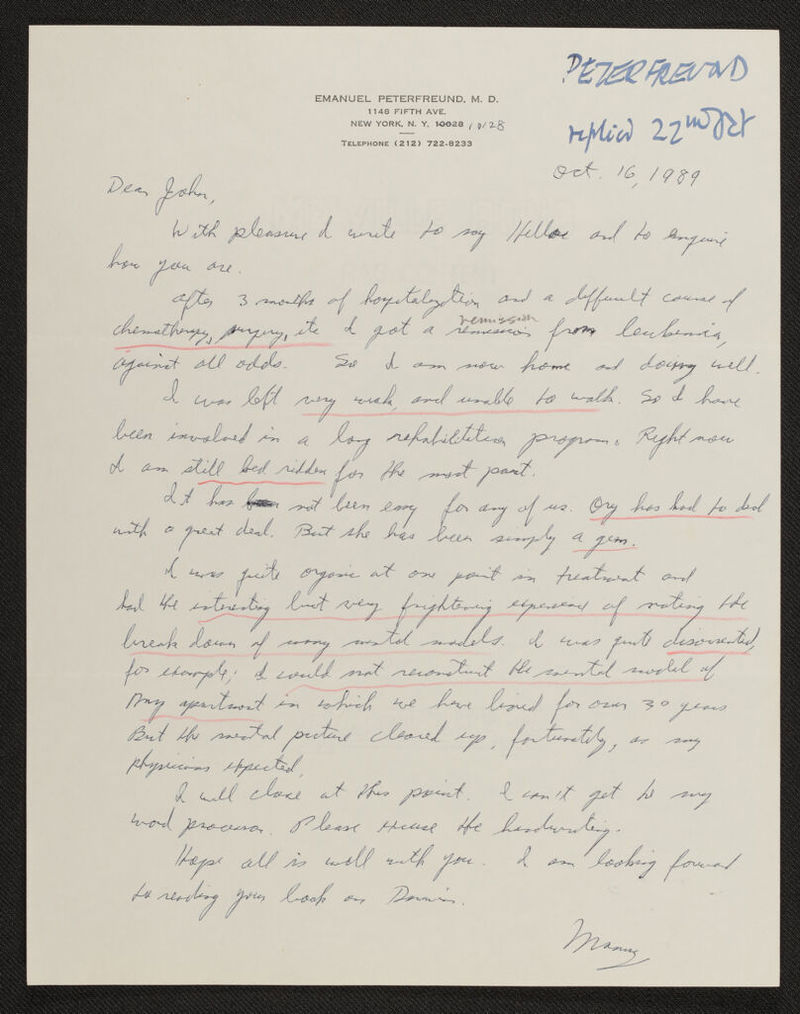 PETERFREUND
replied 22nd Oct
EMANUEL PETERFREUND, M. D.
1148 FIFTH AVE.
NEW YORK, N. Y. 10028 10128
TELEPHONE (212) 722-8233
Oct. 16, 1989
Dear John,
With pleasure I write to say Hello and to enquire
how you are.
After 3 months of hospitalization and a difficult course of
remission
chemotherapy, surgery, etc I got a remission from leukemia,
against all odds. So I am now home and doing well.
I was left very weak, and unable to walk. So I have
been involved in a long rehabilitation program. Right now
I am still bed ridden for the most part.
It has not been easy for any of us. Ory has had to deal
with a great deal. But she has been simply a gem.
I was quite organic at one point in treatment and
had the interesting but very frightening experience of noting the
break down of many mental models. I was quite disoriented,
for example; I could not reconstruct the mental model of
my apartment in which we have lived for over 30 years
But the mental picture cleared up, fortunately, as my
physicians expected.
I will close at this point. I can't get to my
word processor. Please excuse the handwriting.
Hope all is well with you. I am looking forward
to reading your book on Darwin.
Manny